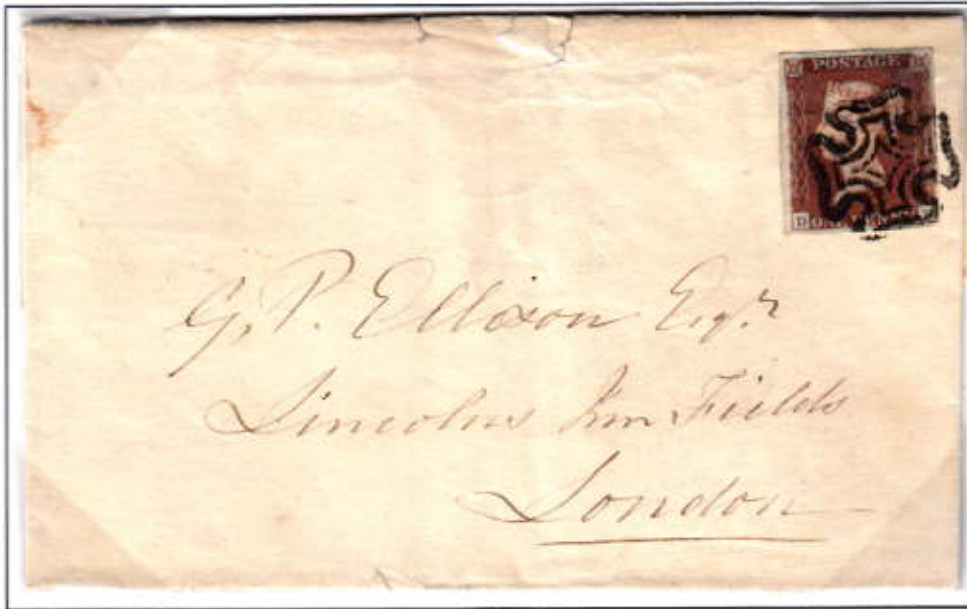 POSTAGE
D ONE PENNY
G. P. Ellison Esqr
Lincolns Inn Fields
London